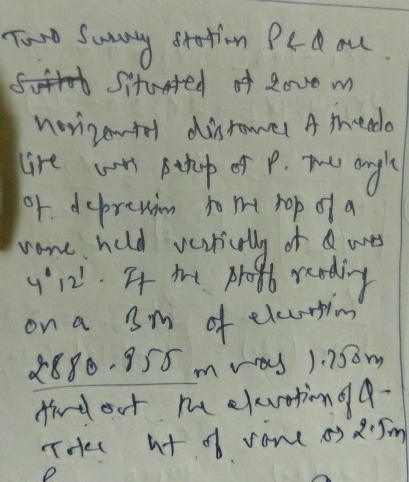 Two Survey station P & Q are
Situated at 2000 m
horizontal distance A theodo
lite was setup at P. The angle
of depression to the top of a
vane held vertically at Q was
4°12'. If the staff reading
on a BM of elevation
2880.955 m was 1.750m
find out the elevation of Q-
Take ht of vane as 2.5m